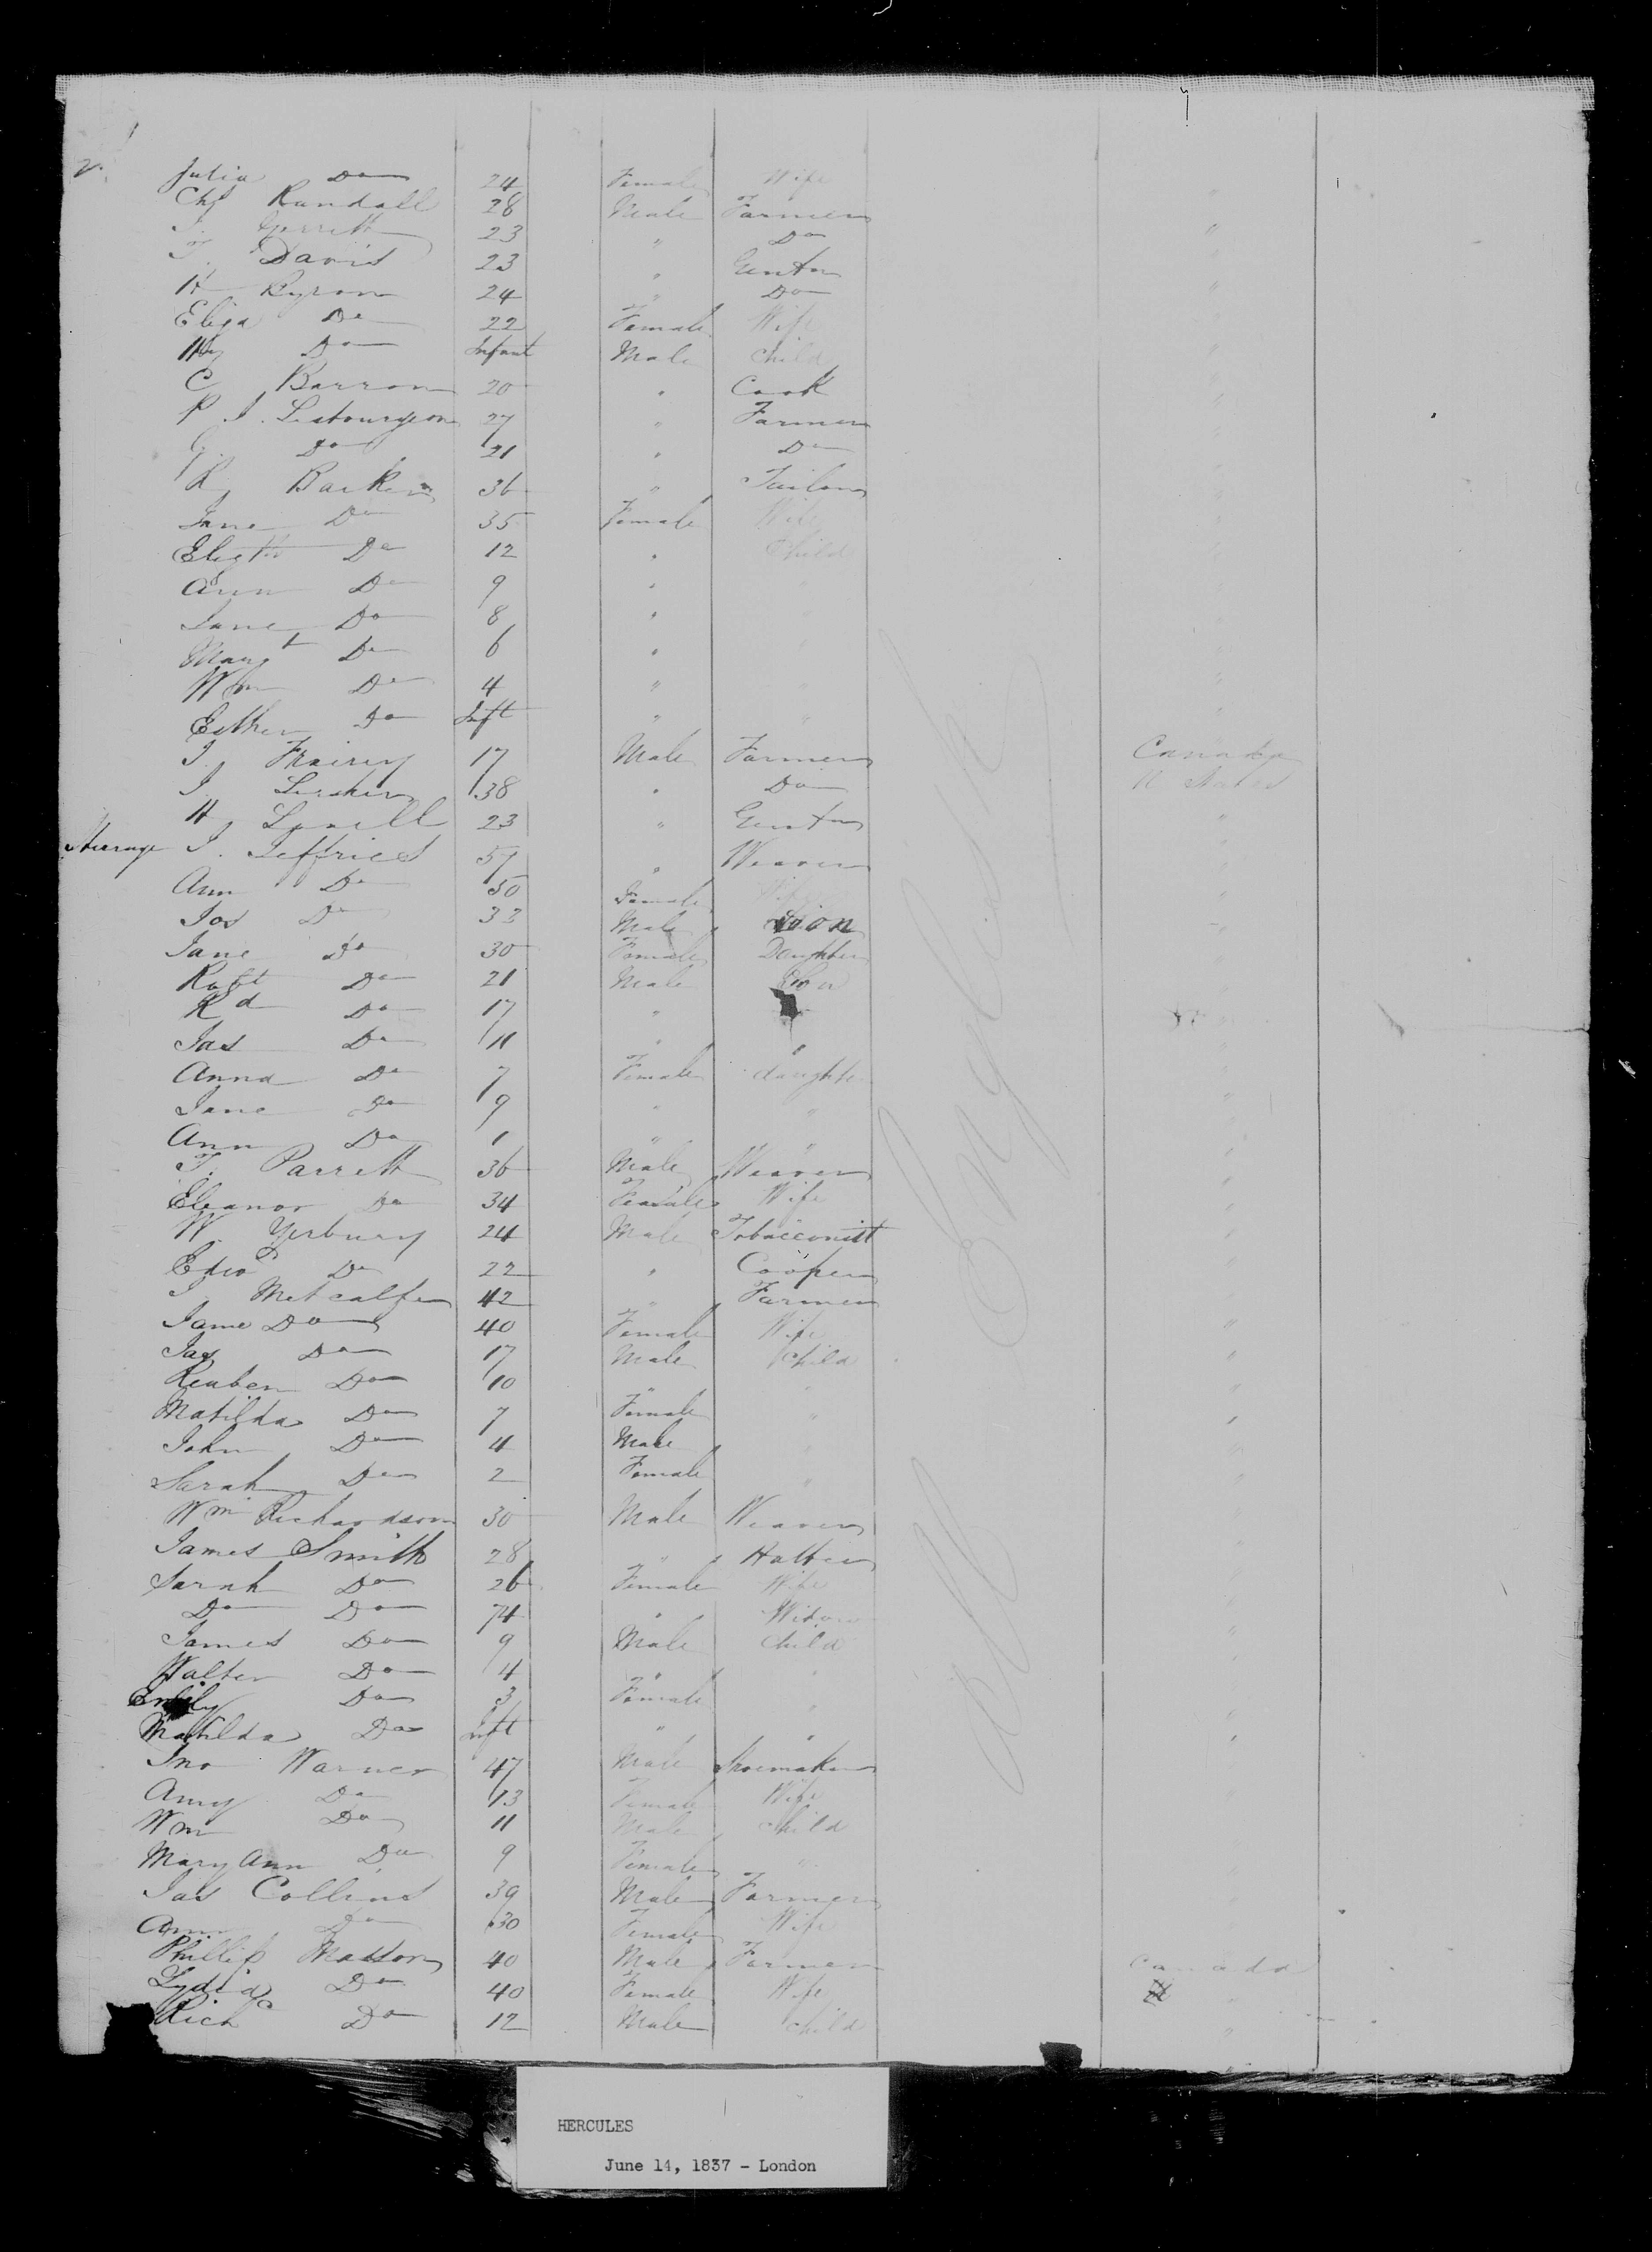 Julia Do 24 Female Wife "
Chs Randall 28 Male Farmer "
J. Gerrett 23 " Do "
T. Davis 23 " Gentn
H Byron 24 " Do "
Eliza Do 22 Female Wife "
Hy Do Infant Male Child "
C Barron 20 " Cook "
P. J. Lebourgeon 27 " Farmer "
G. Do 21 " Do "
R Barker 36 " Tailor "
Jane Do 35 Female Wife "
Elizth Do 12 " Child "
Ann Do 9 " "
Jane Do 8 " "
Margt Do 6 " "
Wm Do 4 " " "
Esther Do Inft " " "
J. 17 Male Farmer Canada
J. 38 " Do U States
H. 23 " Gentn "
Steerage J. Jeffries 57 " Weaver "
Ann Do 50 Female Wife "
Jos Do 33 Male Son "
Jane Do 30 Female Daughter "
Robt Do 21 Male Son "
Rd Do 17 "
Jas Do 11 " " "
Anna Do 7 Female daughter "
Jane Do 9 " " "
Ann Do 1 " " "
T. Parrett 36 Male Weaver "
Eleanor Do 34 Female Wife "
W. Yerbury 24 Male Tobacconist "
Edwd Do 22 " Cooper "
J. Metcalfe 42 " Farmer "
Jane Do 40 Female Wife "
Jas Do 17 Male Child "
Reuben Do 10 " " "
Matilda Do 7 Female " "
John Do 4 Male " "
Sarah Do 2 Female " "
Wm Richardson 30 Male Weaver "
James Smith 28 " Hatter "
Sarah Do 26 Female Wife "
Do Do 74 " Widow "
James Do 9 Male Child "
Walter Do 4 " " "
Emily Do 3 Female " "
Matilda Do Inft " " "
Jno Warner 47 Male Shoemaker
Amy Do 13 Female Wife "
Wm Do 11 Male Child
Mary Ann Do 9 Female " "
Jas Collins 39 Male Farmer "
Ann Do 30 Female Wife
Phillip Matson 40 Male Farmer Canada
Lydia Do 40 Female Wife "
Richd Do 12 Male Child "
All English
HERCULES
June 14, 1837 - London